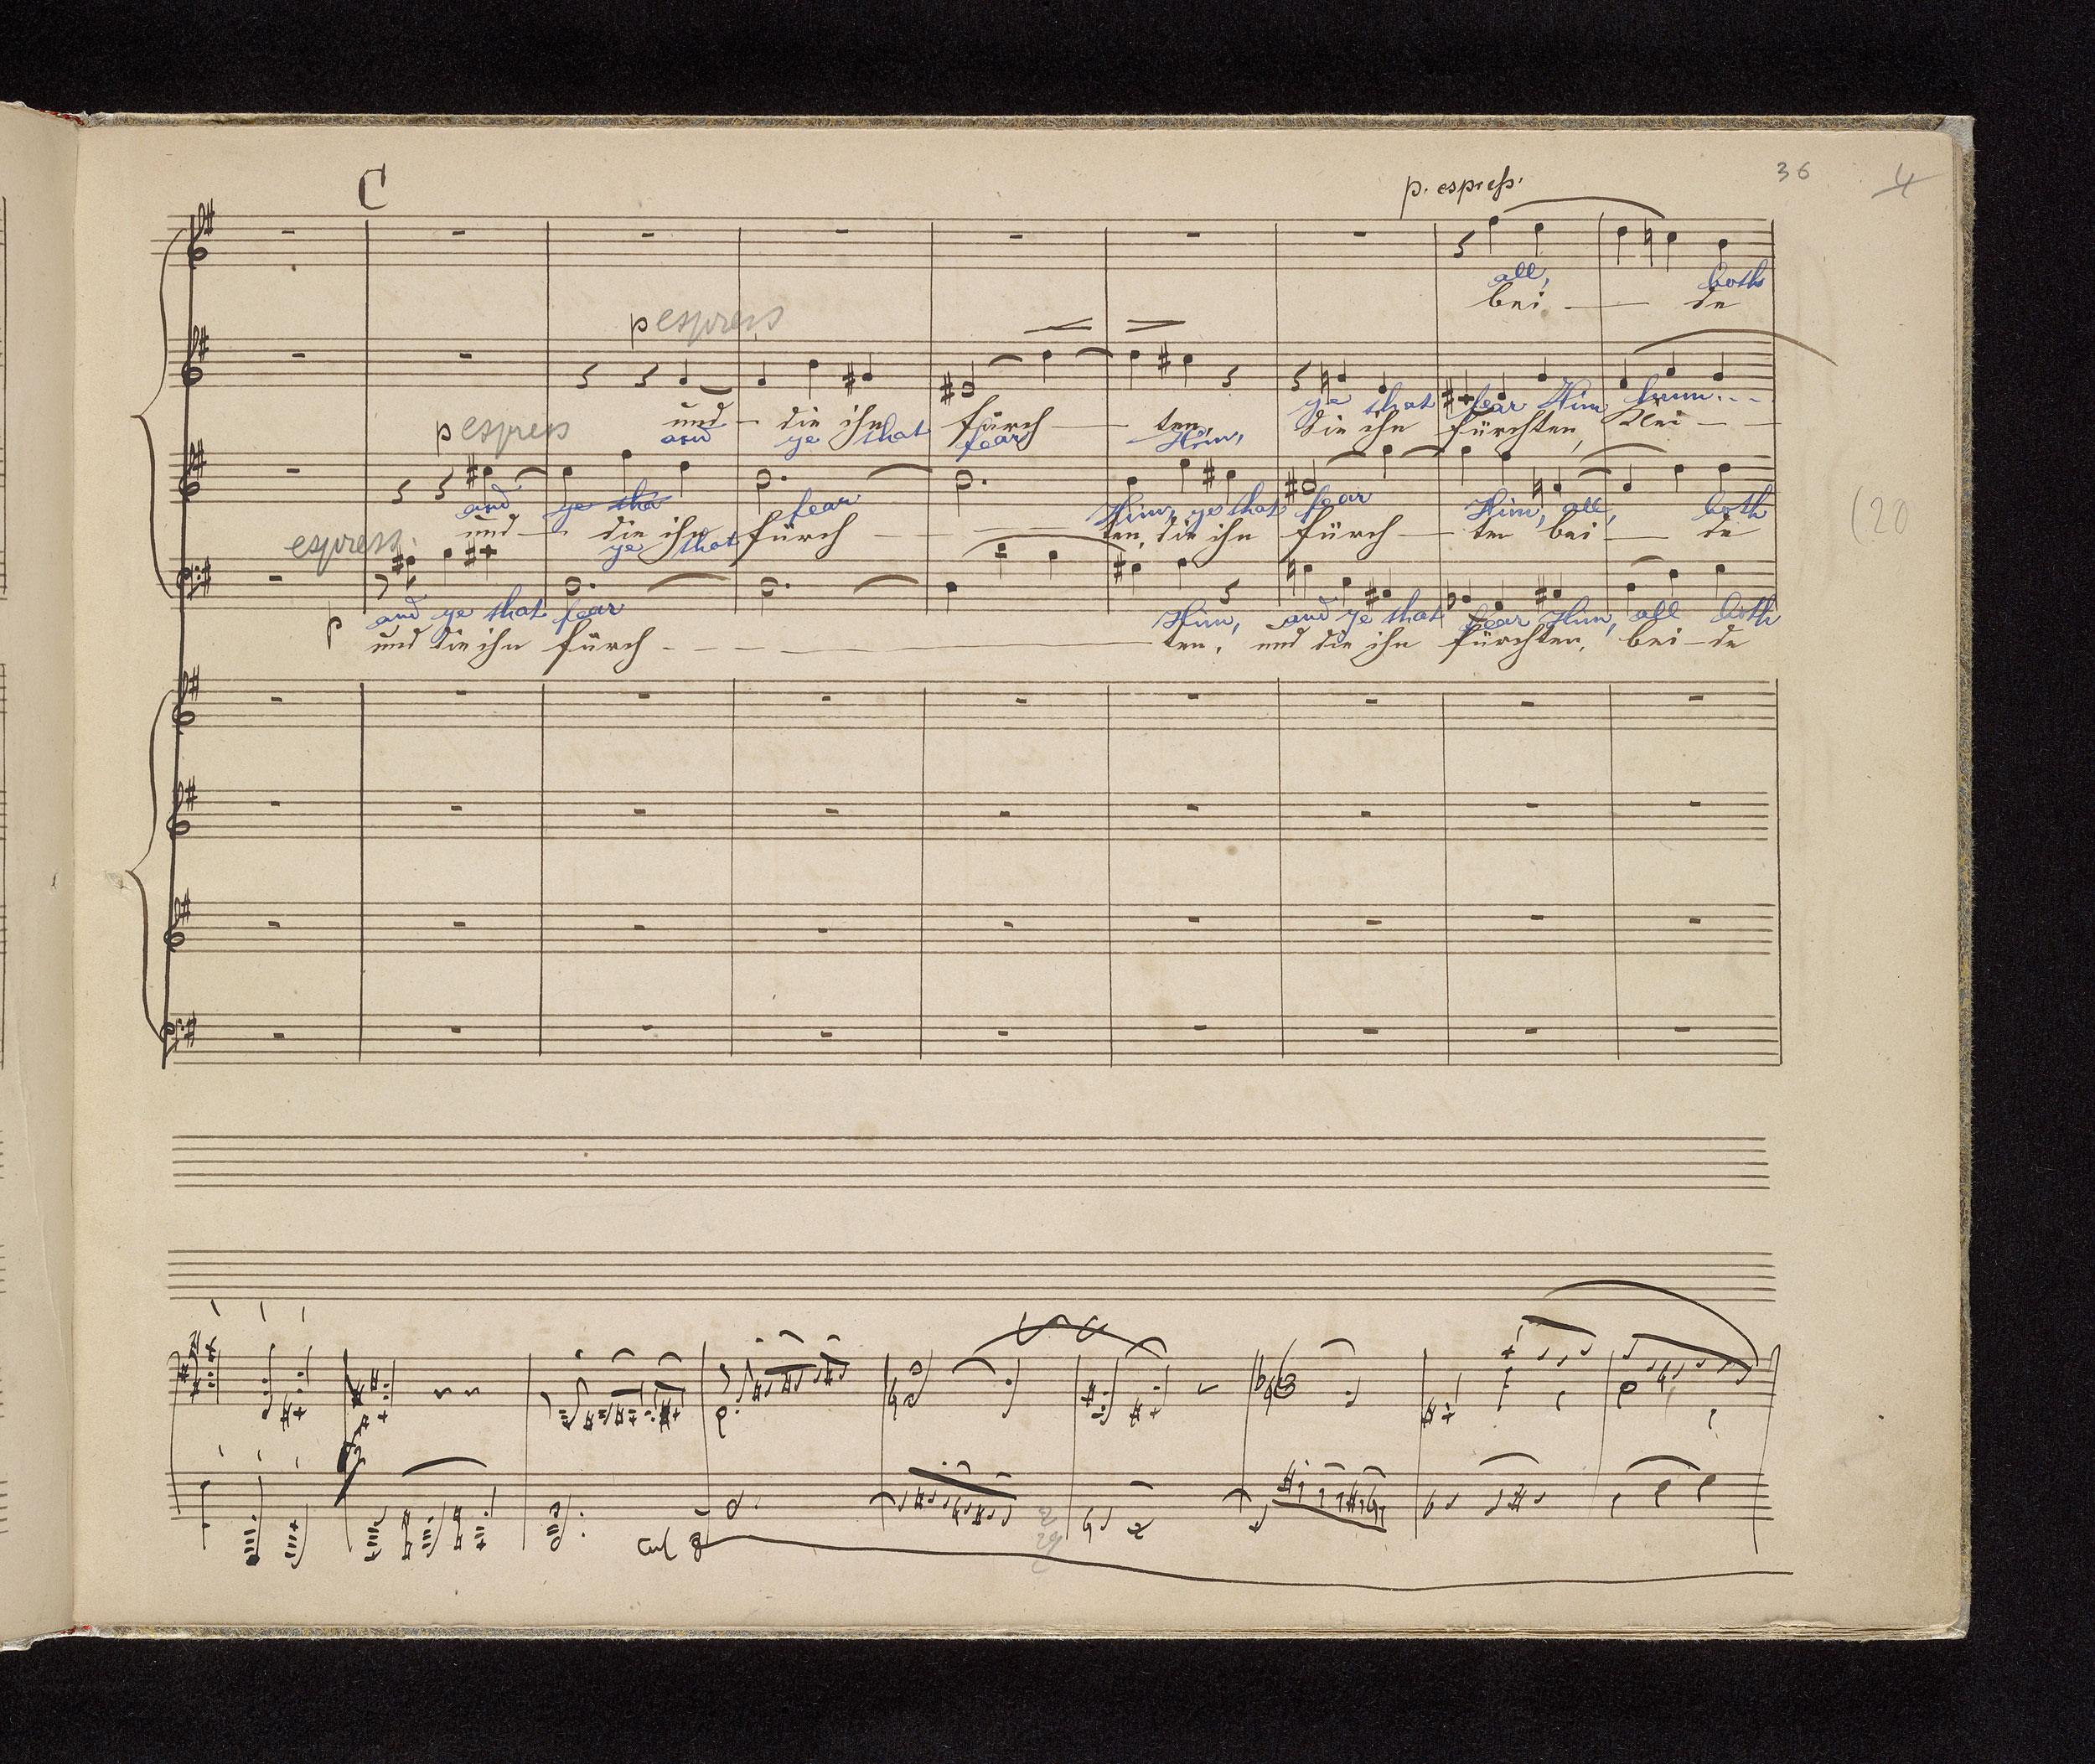 36 4
C
p. espress.
all, both
bei - de
p espress
ye that fear Him hum...
und - die ihn fürch - ten, die ihn fürchten, Klei - -
and ye that fear Him,
p espress
and ye tha fear Him, ye that fear Him, all, both
und - die ihn fürch - ten, die ihn fürch - ten bei - de
ye that
(20
espress.
p
and ye that fear Him, and ye that fear Him, all both
und die ihn fürch - - - ten, und die ihn fürchten, bei - de